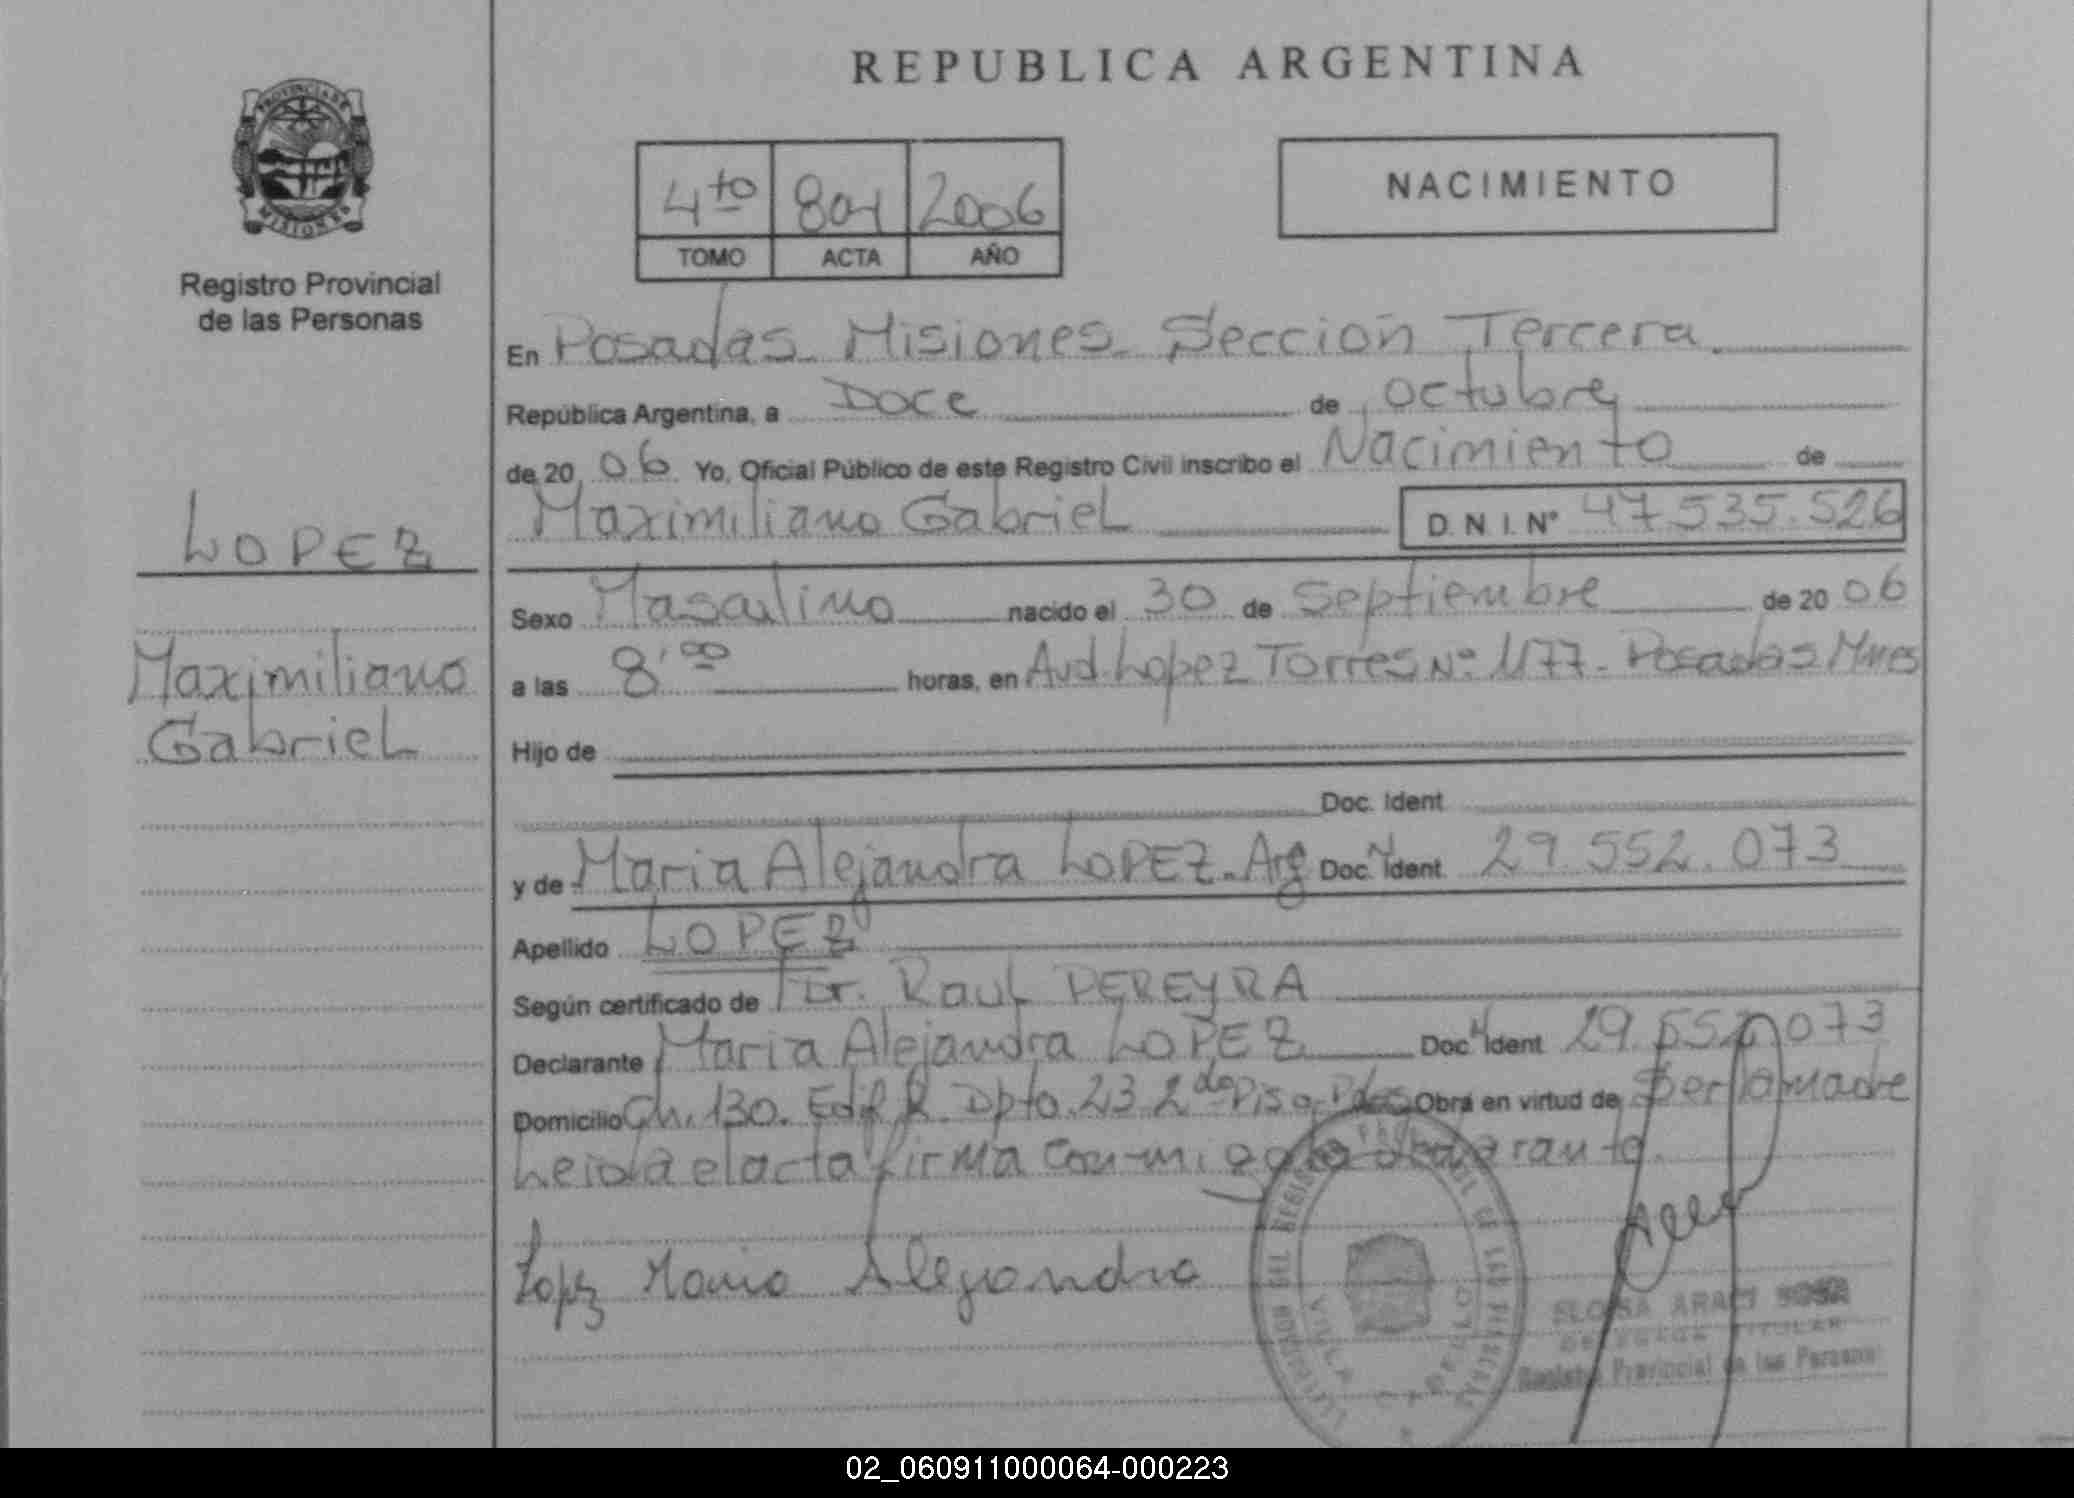 REPUBLICA ARGENTINA
PROVINCIA DE
MISIONES
Registro Provincial
de las Personas
4to 801 2006
TOMO ACTA AÑO
NACIMIENTO
En Posadas Misiones Sección Tercera
República Argentina, a Doce de octubre
de 20 06 Yo, Oficial Público de este Registro Civil inscribo el Nacimiento de
Maximiliano Gabriel D.N.I.Nº 47.535.526
LOPEZ
Maximiliano
Gabriel
Sexo Masculino nacido el 30 de Septiembre de 20 06
a las 8,00 horas, en Avd. Lopez Torres Nº 1177 - Posadas Mnes
Hijo de
Doc. Ident
y de Maria Alejandra LOPEZ - Arg Doc. Ident 29.552.073
Apellido LOPEZ
Según certificado de Dr. Raul PEREYRA
Declarante Maria Alejandra LOPEZ Doc. Ident 29.552.073
Domicilio Ch. 130. Edif R Dpto. 23 2do Piso Pdas Obra en virtud de Ser la madre
Leida el acta firma conmigo la declarante.
Lopez Maria Alejandra
ELOISA ARACI SOSA
DELEGADA TITULAR
Registro Provincial de las Personas
VILLA CABELLO
02_060911000064-000223